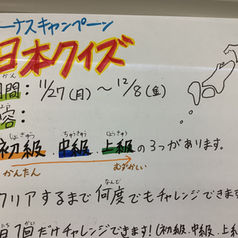 ーナスキャンペーン
日本クイズ
間：11/27(月)〜12/8(金)
容：
初級、中級、上級の3つがあります。
かんたん むずかしい
クリアするまで何度でもチャレンジできます
1回だけチャレンジできます!(初級、中級、上級